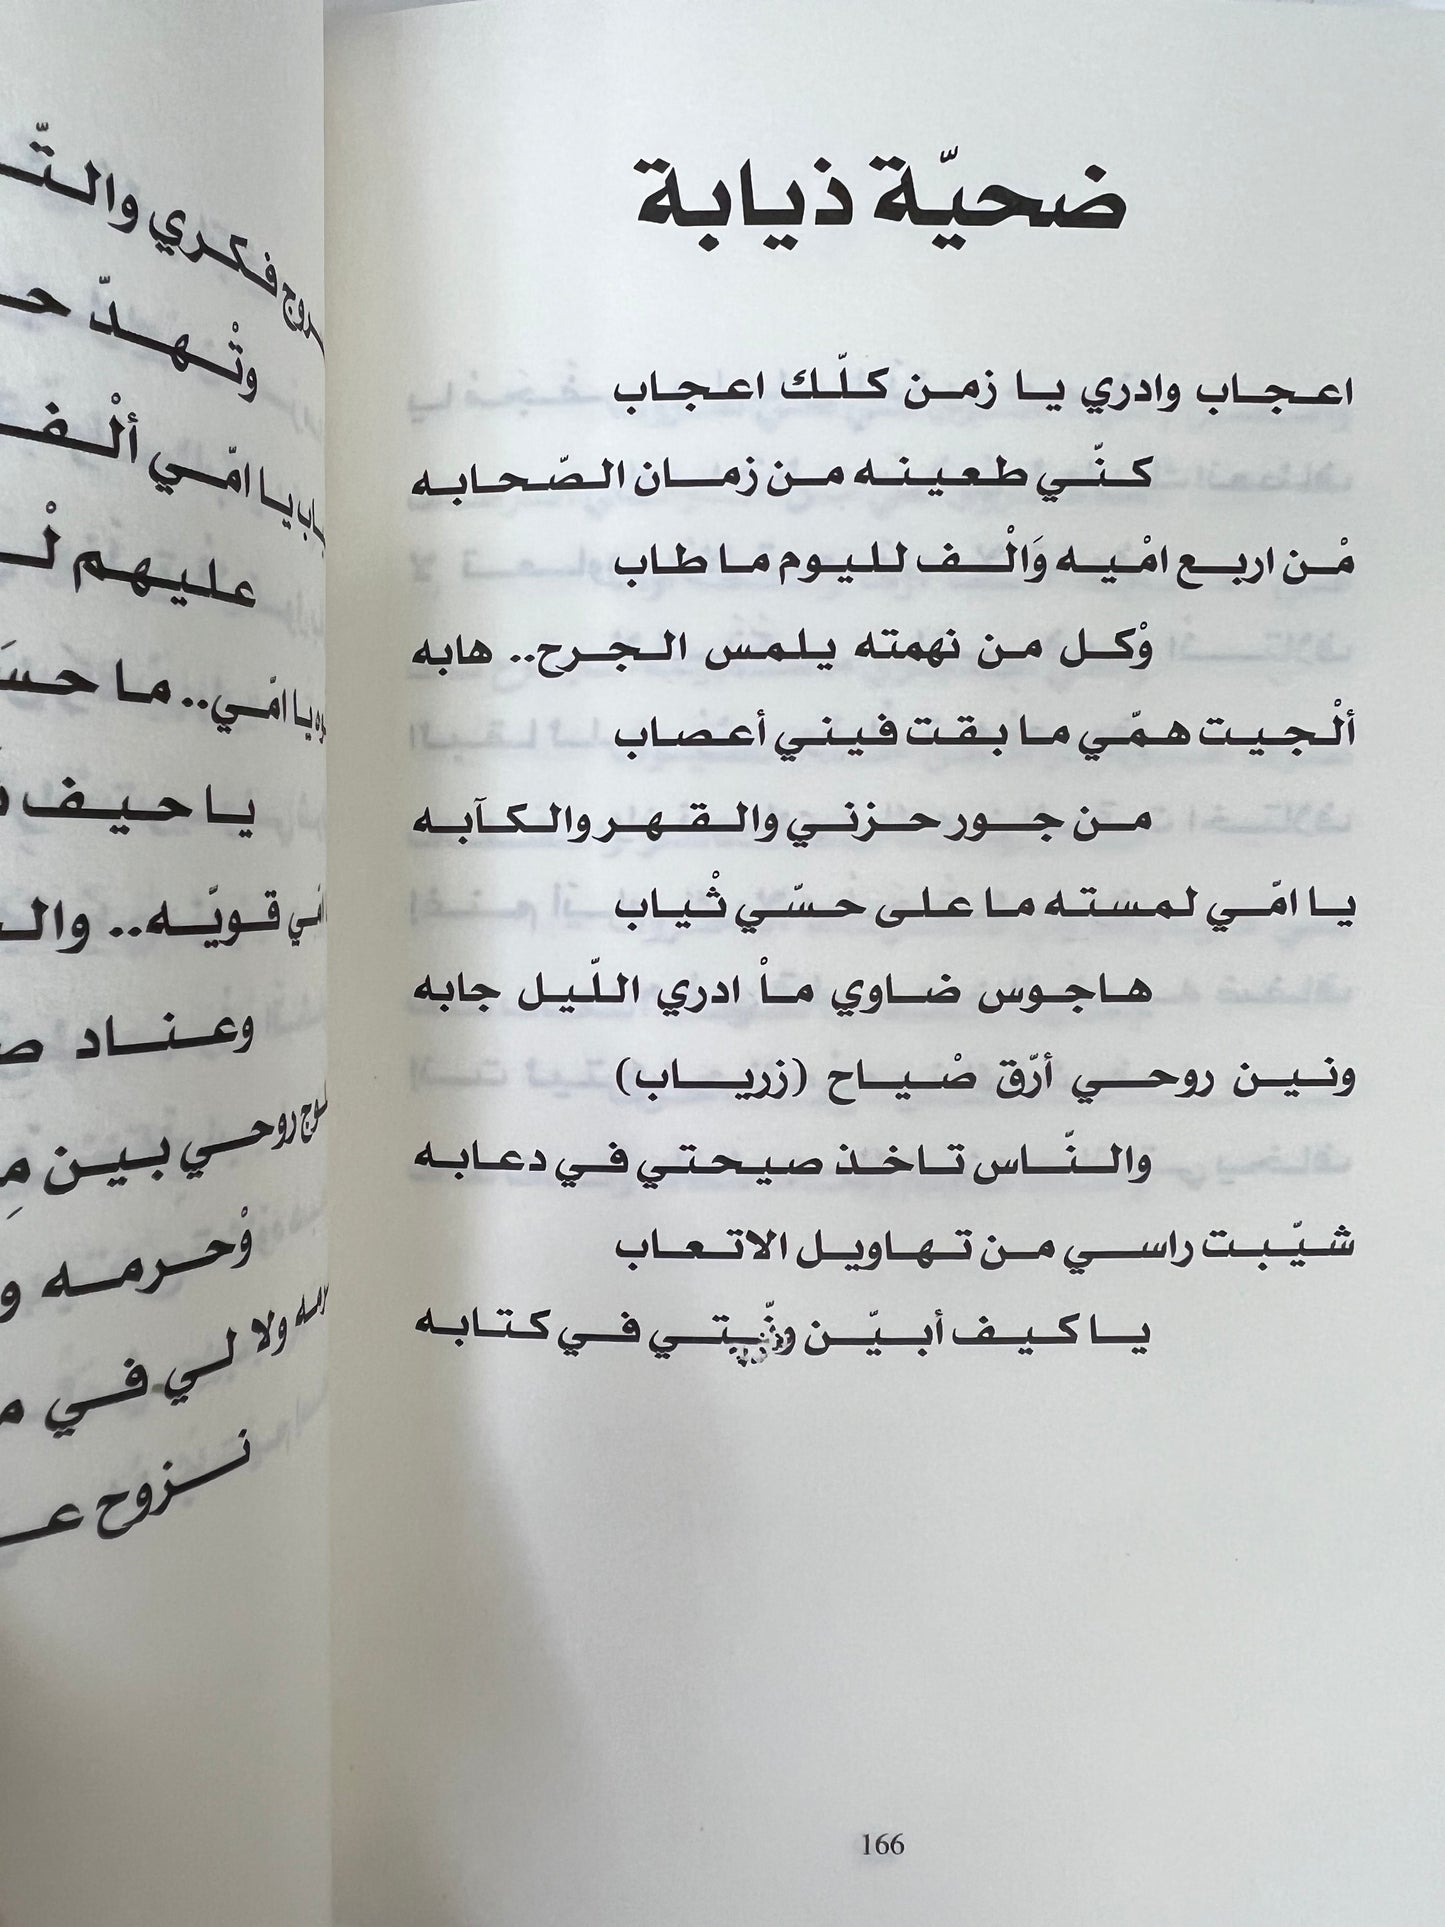 ضحيّة ذيابة
اعجاب وادري يا زمن كلّك اعجاب
كنّي طعينه من زمان الصّحابه
مْن اربع امْيه وَالْف لليوم ما طاب
وْكل من نهمته يلمس الجرح.. هابه
ألْجيت همّي ما بقت فيني أعصاب
من جور حزني والقهر والكآبه
يا امّي لمسته ما على حسّي ثْياب
هاجوس ضاوي ماْ ادري اللّيل جابه
ونين روحي أرّق صْياح (زرياب)
والنّاس تاخذ صيحتي في دعابه
شيّبت راسي من تهاويل الاتعاب
يا كيف أبيّن ونّيتي في كتابه
166
فكري والتّ
وتْهدّ حـ
يا امّي ألْفـ
عليهم لْـ
يا امّي.. ما حسَـ
يا حيف
قويّه.. والـ
وعناد صـ
روحي بين مِـ
وْحرمه و
ولا لي في مـ
نزوح عـ